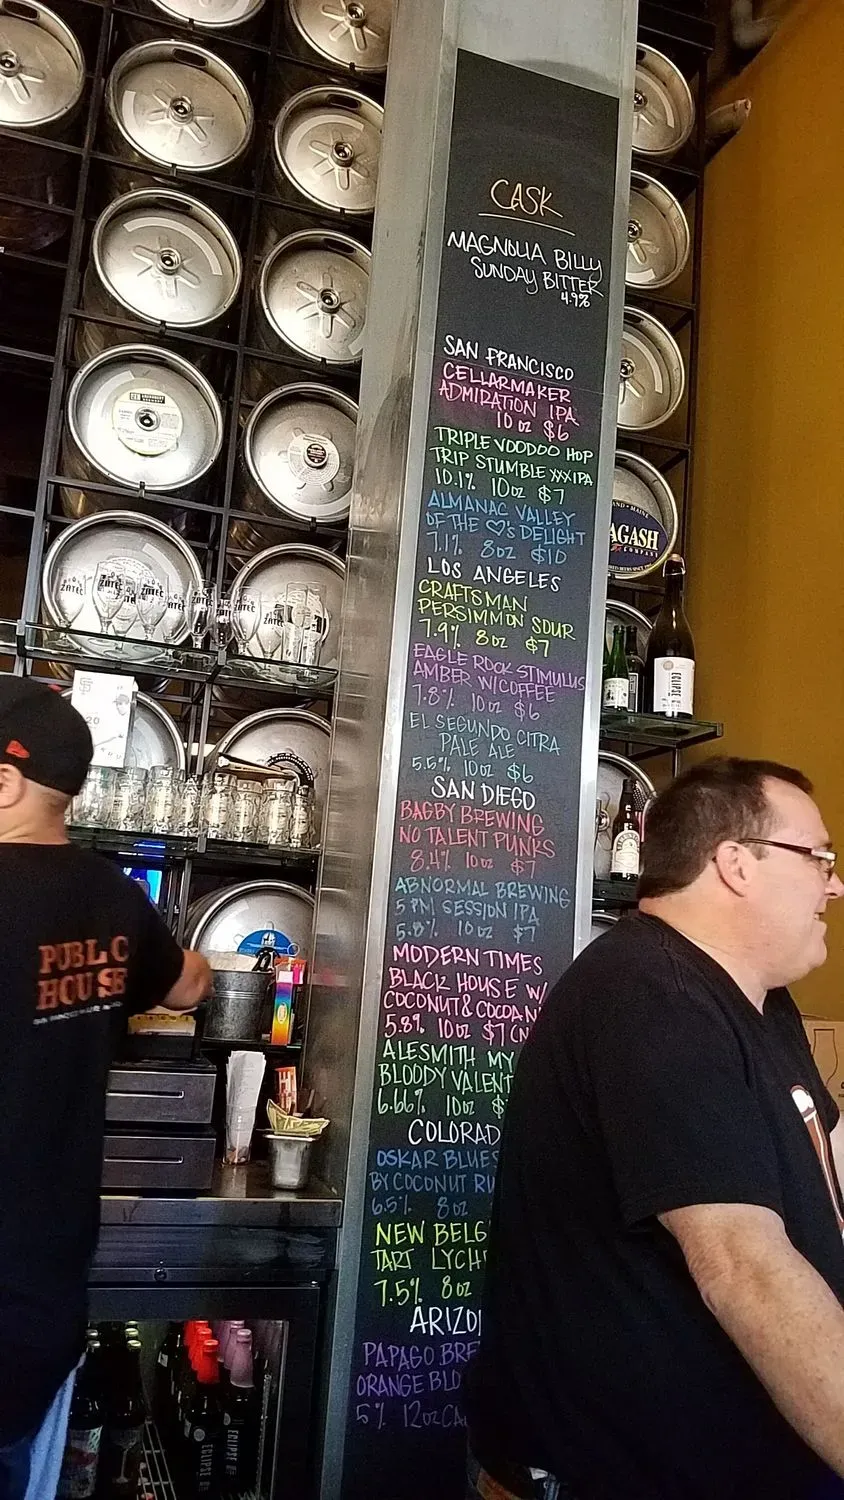 CASK
MAGNOLIA BILLY
SUNDAY BITTER
4.9%
SAN FRANCISCO
CELLARMAKER
ADMIRATION IPA
10 OZ $6
TRIPLE VOODOO HOP
TRIP STUMBLE XXXIPA
10.1% 10oz $7
ALMANAC VALLEY
OF THE ♡'S DELIGHT
7.1% 8oz $10
LOS ANGELES
CRAFTSMAN
PERSIMMON SOUR
7.9% 8oz $7
EAGLE ROCK STIMULUS
AMBER W/COFFEE
7.8% 10oz $6
EL SEGUNDO CITRA
PALE ALE
5.5% 10oz $6
SAN DIEGO
BAGBY BREWING
NO TALENT PUNKS
8.4% 10oz $7
ABNORMAL BREWING
5 PM SESSION IPA
5.8% 10oz $7
MODERN TIMES
BLACK HOUSE W/
COCONUT & COCOA N
5.8% 10oz $7 (N
ALESMITH MY
BLOODY VALENT
6.66% 10oz $
COLORAD
OSKAR BLUES
BY COCONUT RU
6.5% 8oz
NEW BELG
TART LYCH
7.5% 8oz
ARIZO
PAPAGO BRE
ORANGE BLO
5% 12oz CA
AGASH
COMPANY
ECLIPSE
ZATEC
ZATEC
ZATEC
ZATEC
SF
20
PUBLIC
HOUSE
ECLIPSE
ECLIPSE